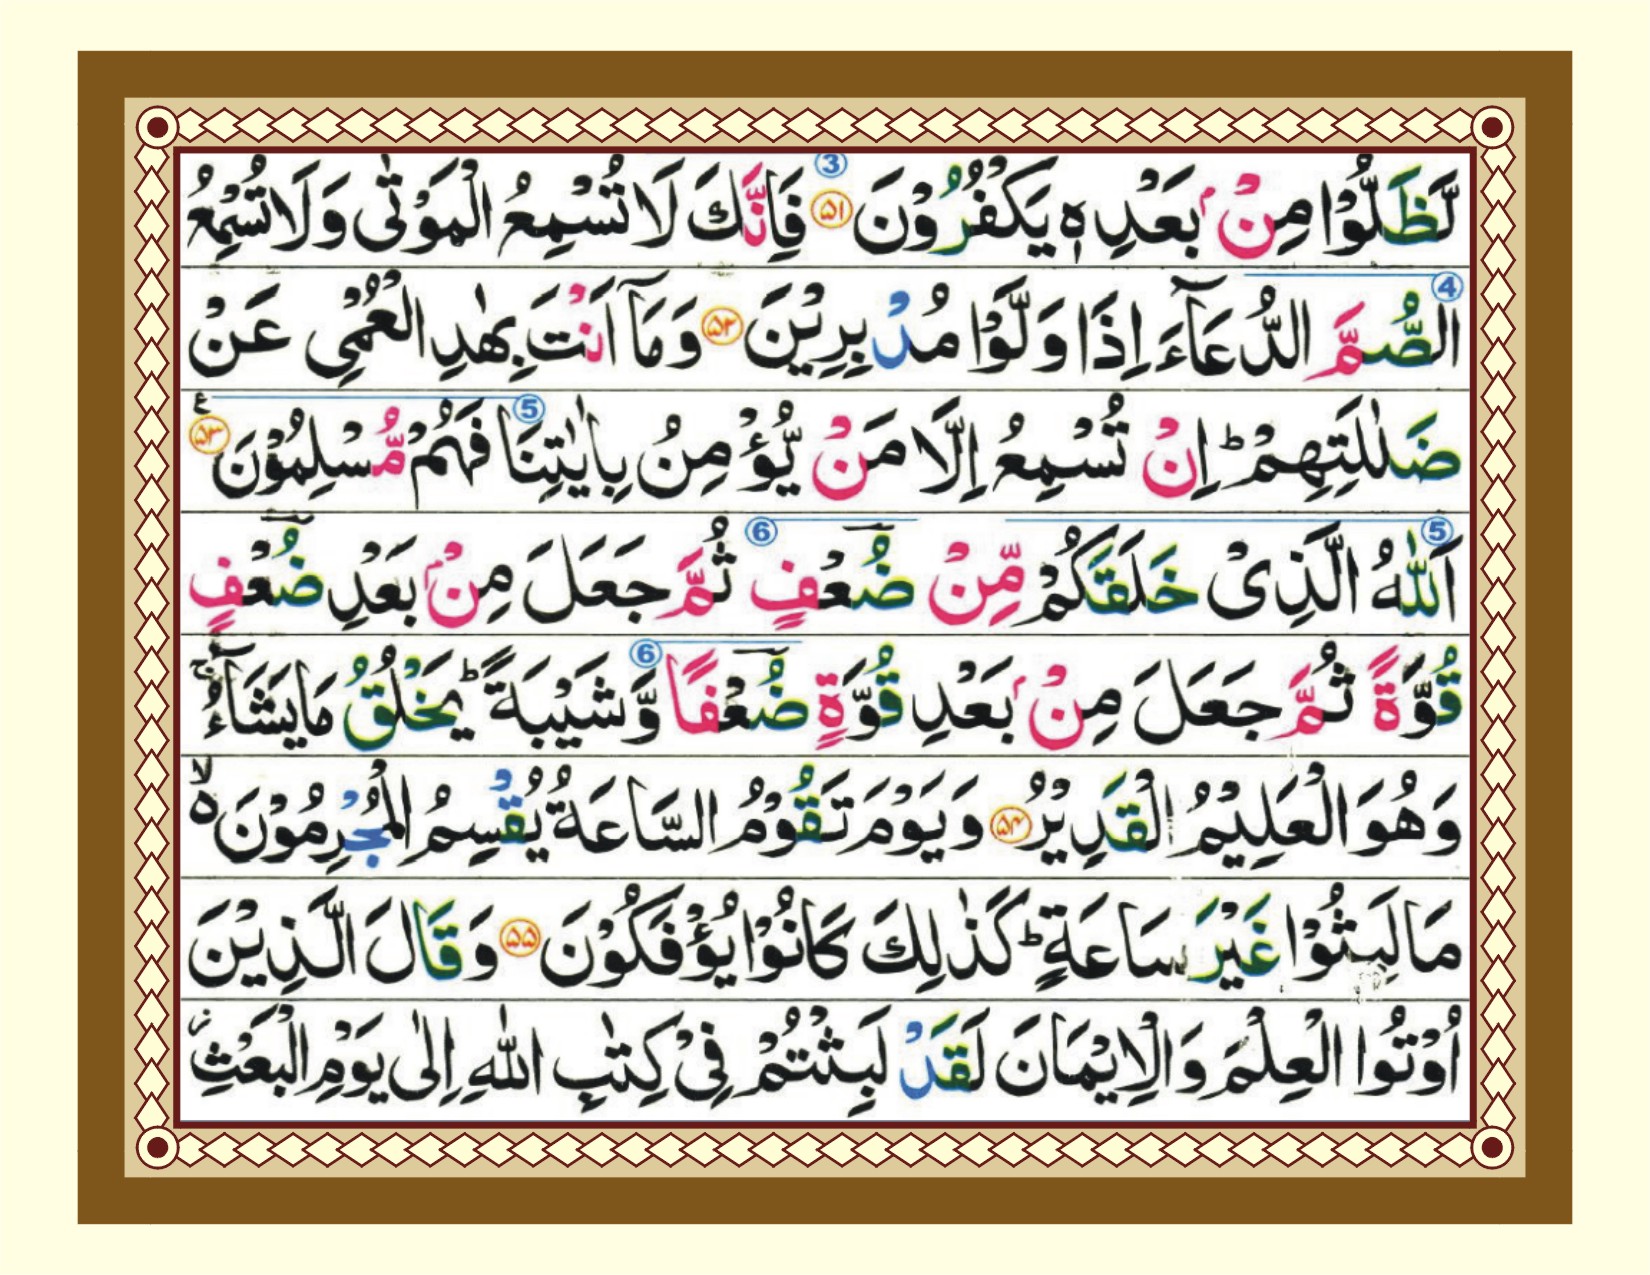 لَّظَلُّوۡا مِنۡۢ بَعۡدِهٖ يَكۡفُرُوۡنَ ﴿۵۱﴾ 3 فَاِنَّكَ لَا تُسۡمِعُ الۡمَوۡتٰى وَلَا تُسۡمِعُ
4 الصُّمَّ الدُّعَآءَ اِذَا وَلَّوۡا مُدۡبِرِيۡنَ ﴿۵۲﴾ وَمَاۤ اَنۡتَ بِهٰدِ الۡعُمۡىِ عَنۡ
ضَلٰلَتِهِمۡ ؕ اِنۡ تُسۡمِعُ اِلَّا مَنۡ يُّؤۡمِنُ بِاٰيٰتِنَا 5 فَهُمۡ مُّسۡلِمُوۡنَ ﴿۵۳﴾ ع
5 اَللّٰهُ الَّذِىۡ خَلَقَكُمۡ مِّنۡ ضُعۡفٍ 6 ثُمَّ جَعَلَ مِنۡۢ بَعۡدِ ضُعۡفٍ
قُوَّةً ثُمَّ جَعَلَ مِنۡۢ بَعۡدِ قُوَّةٍ ضُعۡفًا 6 وَّشَيۡبَةً ؕ يَخۡلُقُ مَا يَشَآءُ ۚ
وَهُوَ الۡعَلِيۡمُ الۡقَدِيۡرُ ﴿۵۴﴾ وَيَوۡمَ تَقُوۡمُ السَّاعَةُ يُقۡسِمُ الۡمُجۡرِمُوۡنَ ۙ
مَا لَبِثُوۡا غَيۡرَ سَاعَةٍ ؕ كَذٰلِكَ كَانُوۡا يُؤۡفَكُوۡنَ ﴿۵۵﴾ وَقَالَ الَّذِيۡنَ
اُوۡتُوا الۡعِلۡمَ وَالۡاِيۡمَانَ لَقَدۡ لَبِثۡتُمۡ فِىۡ كِتٰبِ اللّٰهِ اِلٰى يَوۡمِ الۡبَعۡثِ ز